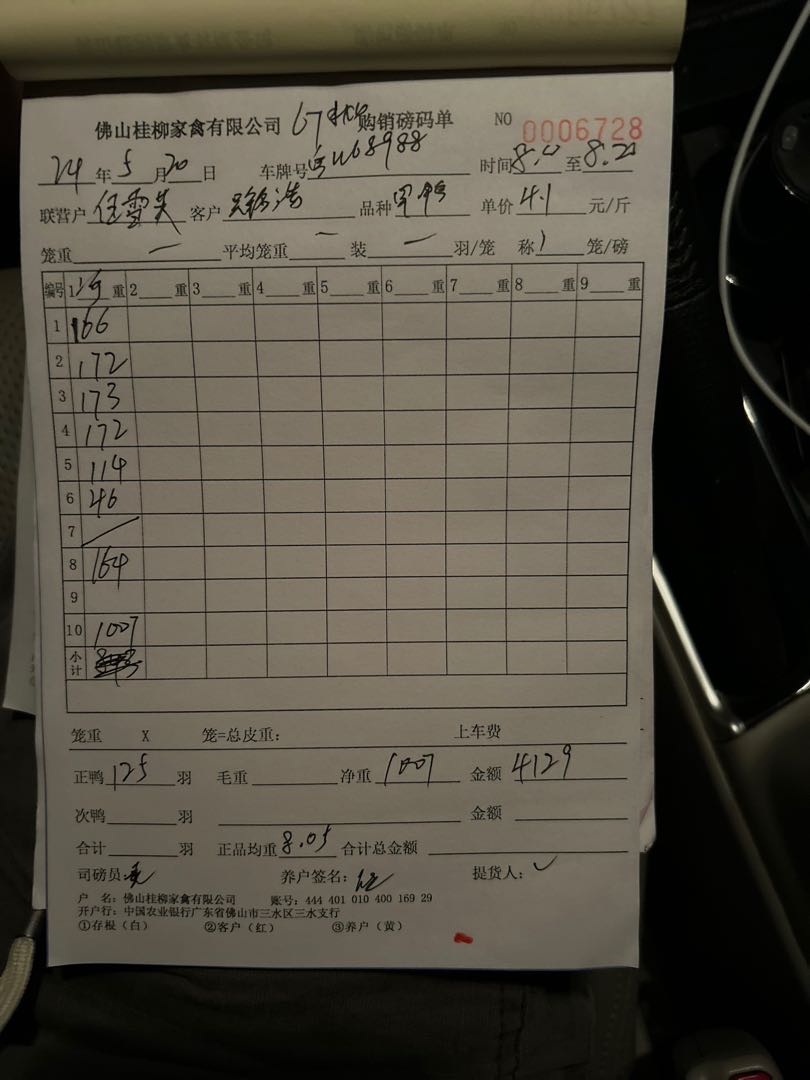 佛山桂柳家禽有限公司 67 购销磅码单 NO 0006728
24 年 5 月 20 日 车牌号 U68988 时间 8: 至 8:20
联营户 任雪 客户 品种 单价 4.1 元/斤
笼重 一 平均笼重 一 装 一 羽/笼 称 1 笼/磅
编号 1 25 重 2 重 3 重 4 重 5 重 6 重 7 重 8 重 9 重
1 166
2 172
3 173
4 172
5 114
6 46
7 /
8 164
9
10 1007
小计
笼重 X 笼=总皮重: 上车费
正鸭 125 羽 毛重 净重 1007 金额 4129
次鸭 羽 金额
合计 羽 正品均重 8.05 合计总金额
司磅员: 养户签名: 提货人: ✓
户 名: 佛山桂柳家禽有限公司 账号: 444 401 010 400 169 29
开户行: 中国农业银行广东省佛山市三水区三水支行
①存根(白) ②客户(红) ③养户(黄)